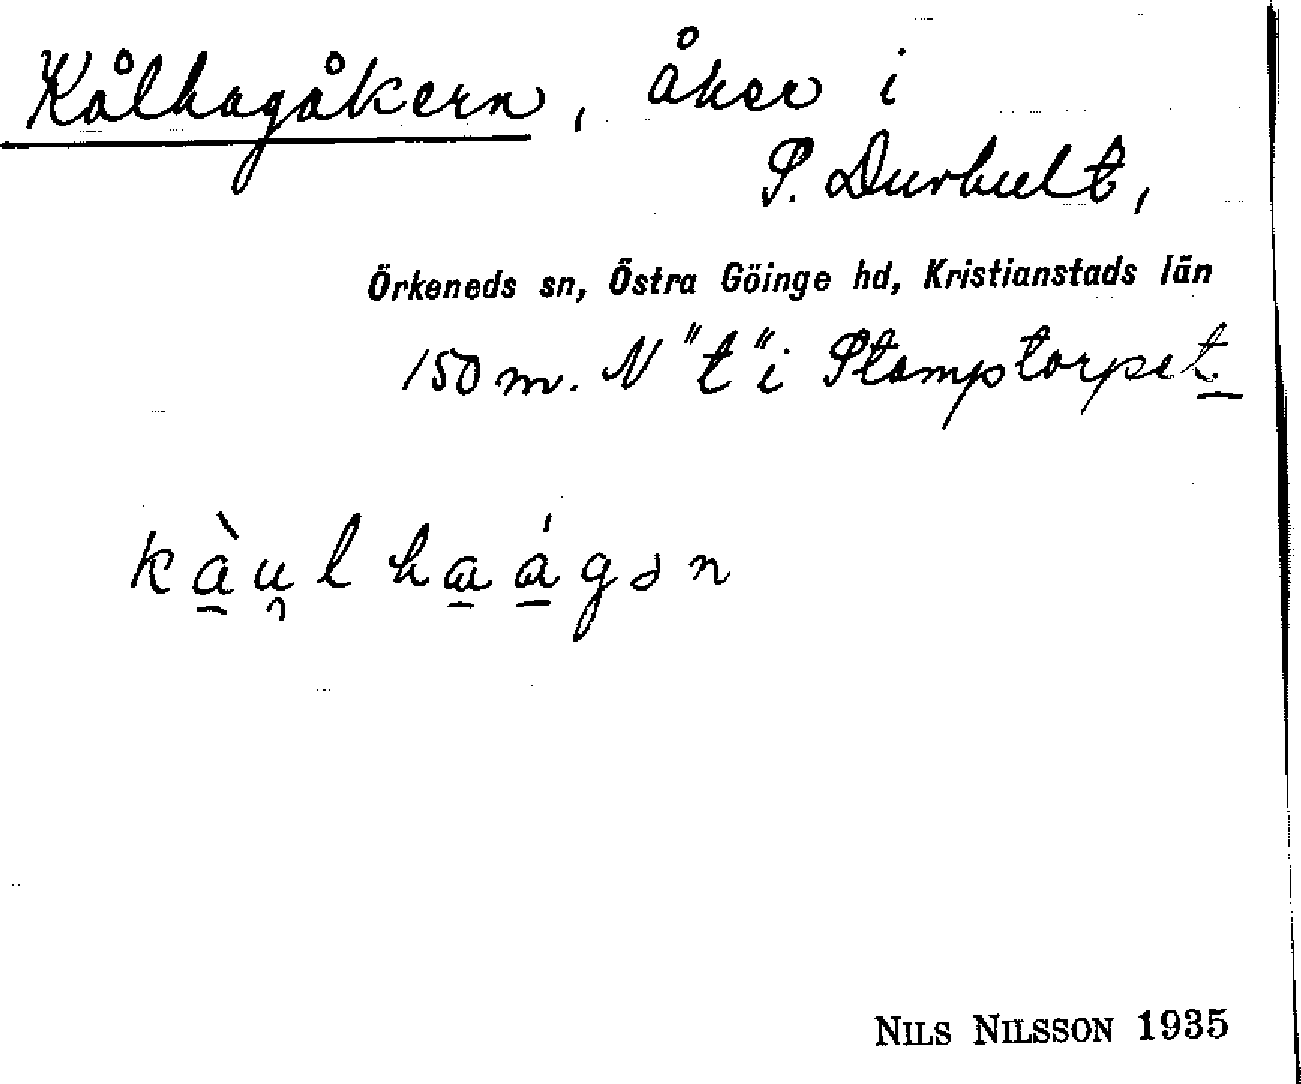 Kålhagåkern, åker i
S. Durhult,
Örkeneds sn, Östra Göinge hd, Kristianstads län
150 m. N "t" i Stamptorpet
kàu̯l ha ágən
NILS NILSSON 1935